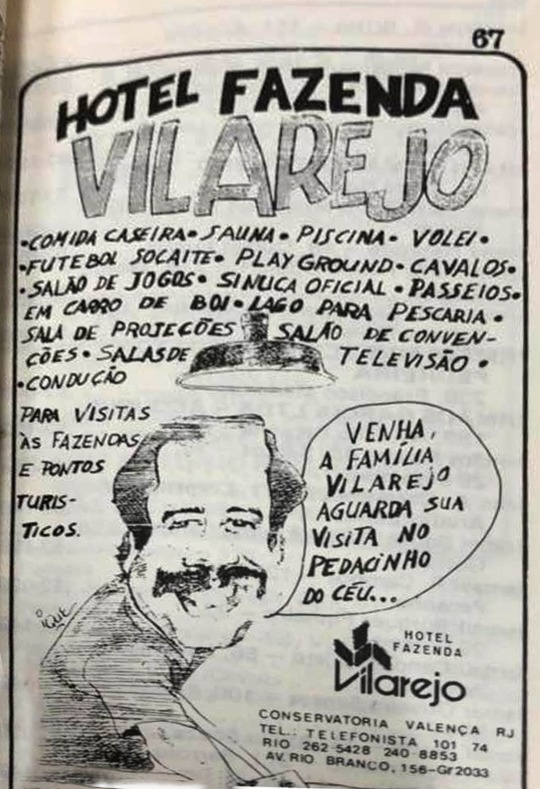 67
HOTEL FAZENDA
VILAREJO
•COMIDA CASEIRA• SAUNA• PISCINA• VOLEI•
•FUTEBOL SOCAITE• PLAY GROUND• CAVALOS•
•SALÃO DE JOGOS• SINUCA OFICIAL• PASSEIOS•
EM CARRO DE BOI• LAGO PARA PESCARIA•
SALA DE PROJEÇÕES SALÃO DE CONVEN-
ÇÕES• SALAS DE TELEVISÃO•
•CONDUÇÃO
PARA VISITAS
ÀS FAZENDAS
E PONTOS
TURIS-
TICOS.
VENHA,
A FAMÍLIA
VILAREJO
AGUARDA SUA
VISITA NO
PEDACINHO
DO CÉU...
IQUE
HOTEL
FAZENDA
Vilarejo
CONSERVATORIA VALENÇA RJ
TEL.: TELEFONISTA 101 74
RIO 262-5428 240-8853
AV. RIO BRANCO, 156-Gr 2033